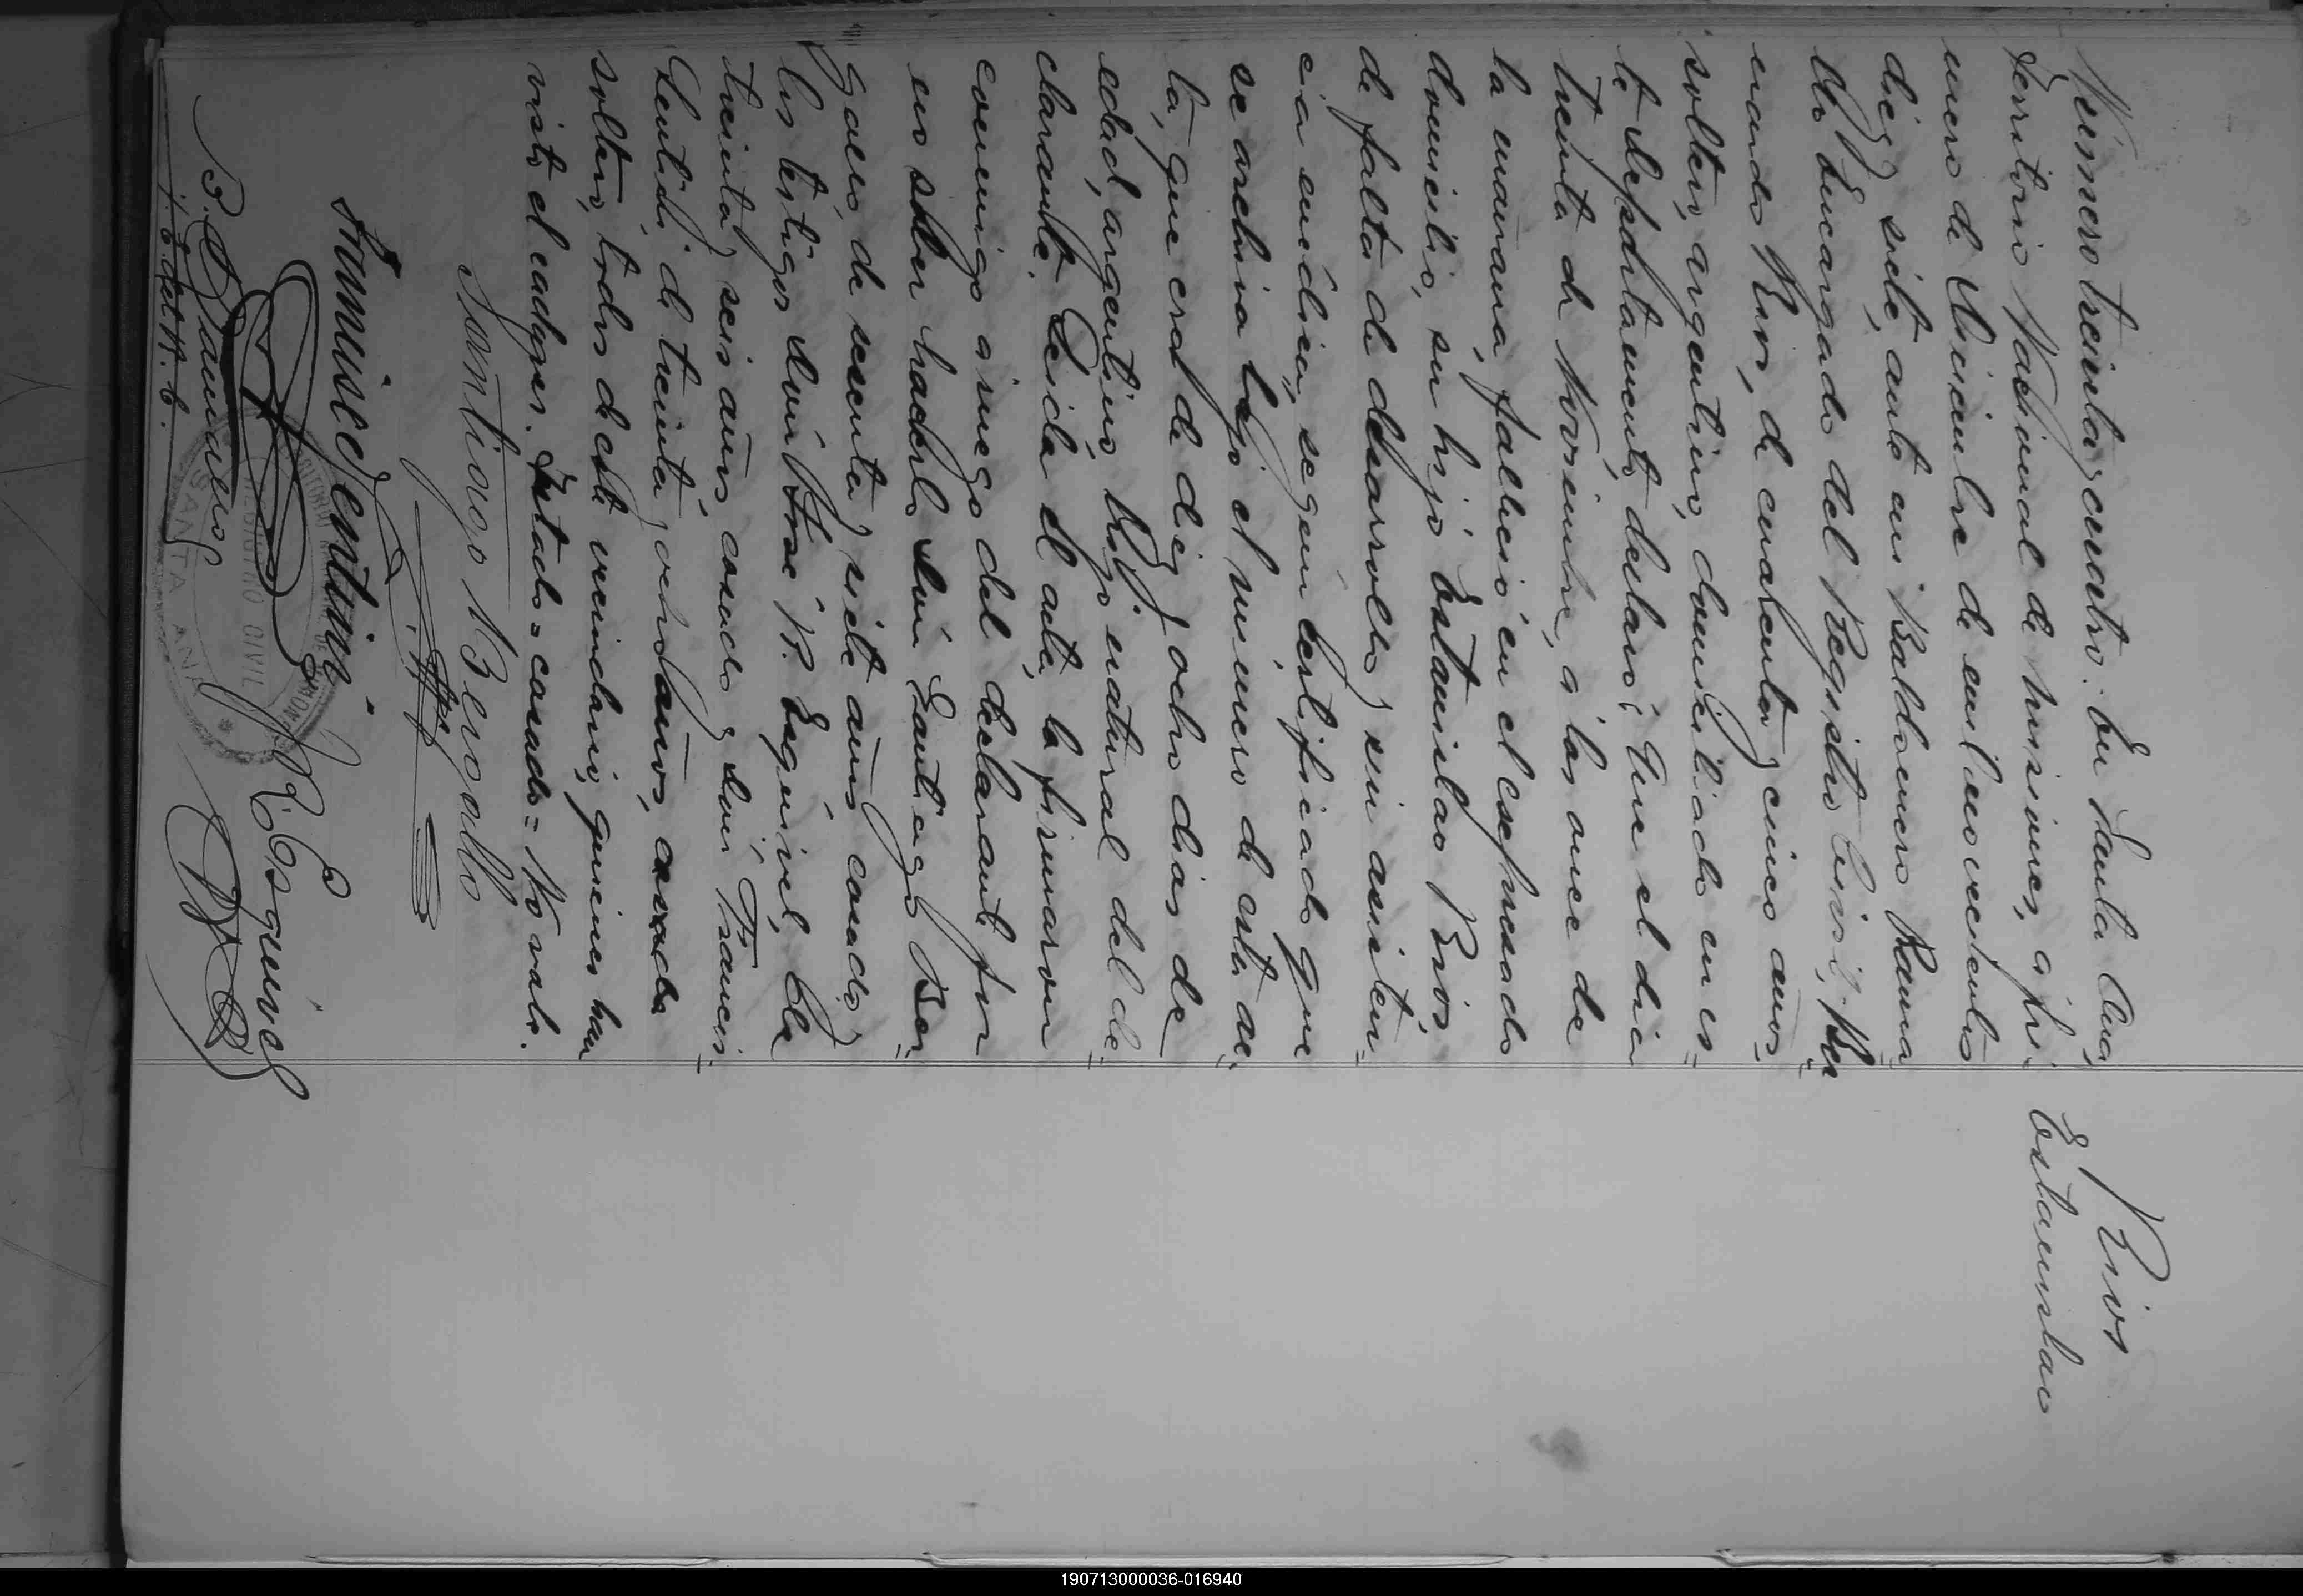 Rios
Estanislao
Número treinta y cuatro. En Santa Ana,
Territorio Nacional de Misiones, a pri-
mero de Diciembre de mil novecientos
diez y siete, ante mi Baldomero Rama
llo Encargado del Registro Civil, Ber
nardo Rios, de cuarenta y cinco años,
soltero, argentino, domiciliado en es-
te Departamento, declaró: Que el dia
treinta de Noviembre, a las once de
la mañana, falleció en el expresado
domicilio, su hijo Estanislao Rios,
de falta de desarrollo y sin asisten-
cia médica, según certificado que
se archiva bajo el número de esta ac-
ta, que era de diez y ocho dias de
edad, argentino, hijo natural del de-
clarante. Leida el acta, la firmaron
conmigo a ruego del declarante por
no saber hacerlo Don Santiago Ber-
gallo, de sesenta y siete años casado y
los testigos Don José R. Esquivel, de
treinta y seis años, casado y Don Francis-
Gentili de treinta y ocho años, casado
soltero, todos de este vecindario, quienes han
visto el cadáver. Testado = casado = No vale.
Santiago Bergallo
Francisco Gentili
J. R. Esquivel
B. Ramallo
J. E. del R. C.
REGISTRO CIVIL
SANTA ANA
190713000036-016940